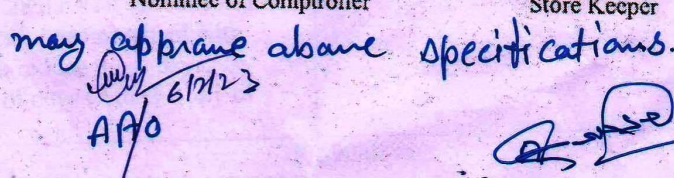 Nominee of Comptroller Store Keeper
may approve above specifications.
6/2/23
AAO